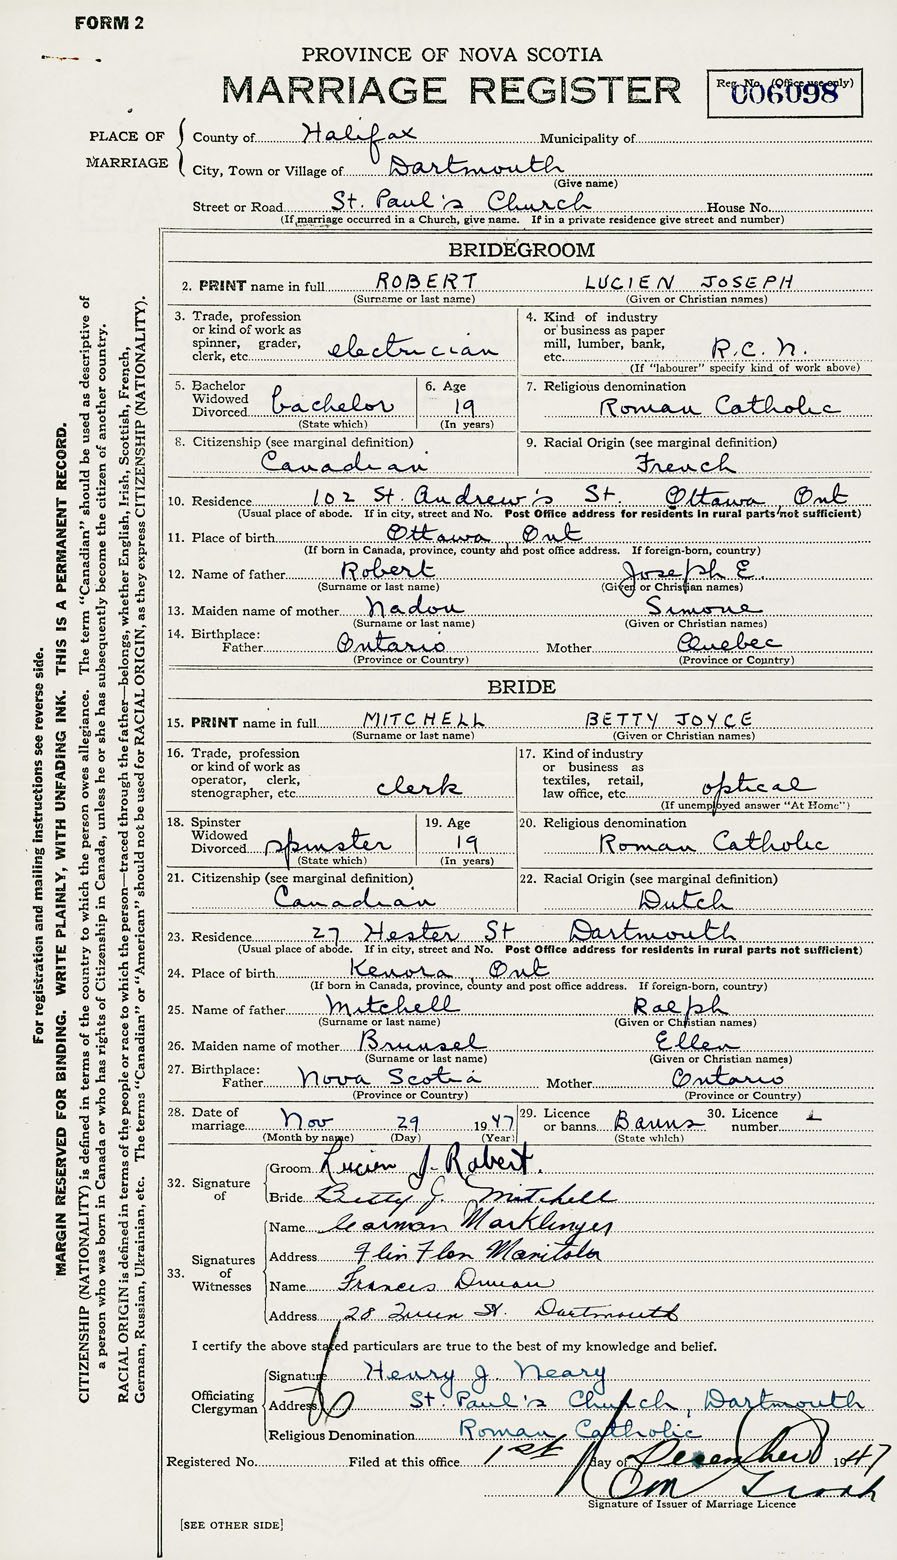 FORM 2
PROVINCE OF NOVA SCOTIA
MARRIAGE REGISTER
Reg. No. (Office use only)
006098
PLACE OF MARRIAGE
County of Halifax Municipality of
City, Town or Village of Dartmouth
(Give name)
Street or Road St. Paul's Church House No.
(If marriage occurred in a Church, give name. If in a private residence give street and number)
BRIDEGROOM
2. PRINT name in full ROBERT LUCIEN JOSEPH
(Surname or last name) (Given or Christian names)
3. Trade, profession or kind of work as spinner, grader, clerk, etc. electrician
4. Kind of industry or business as paper mill, lumber, bank, etc. R.C.N.
(If "labourer" specify kind of work above)
5. Bachelor Widowed Divorced bachelor
(State which)
6. Age 19
(In years)
7. Religious denomination
Roman Catholic
8. Citizenship (see marginal definition)
Canadian
9. Racial Origin (see marginal definition)
French
10. Residence 102 St. Andrew's St. Ottawa, Ont
(Usual place of abode. If in city, street and No. Post Office address for residents in rural parts not sufficient)
11. Place of birth Ottawa Ont
(If born in Canada, province, county and post office address. If foreign-born, country)
12. Name of father Robert Joseph E.
(Surname or last name) (Given or Christian names)
13. Maiden name of mother Nadon Simone
(Surname or last name) (Given or Christian names)
14. Birthplace:
Father Ontario Mother Quebec
(Province or Country) (Province or Country)
BRIDE
15. PRINT name in full MITCHELL BETTY JOYCE
(Surname or last name) (Given or Christian names)
16. Trade, profession or kind of work as operator, clerk, stenographer, etc clerk
17. Kind of industry or business as textiles, retail, law office, etc. optical
(If unemployed answer "At Home")
18. Spinster Widowed Divorced spinster
(State which)
19. Age 19
(In years)
20. Religious denomination
Roman Catholic
21. Citizenship (see marginal definition)
Canadian
22. Racial Origin (see marginal definition)
Dutch
23. Residence 27 Hester St Dartmouth
(Usual place of abode. If in city, street and No. Post Office address for residents in rural parts not sufficient)
24. Place of birth Kenora Ont
(If born in Canada, province, county and post office address. If foreign-born, country)
25. Name of father Mitchell Ralph
(Surname or last name) (Given or Christian names)
26. Maiden name of mother Brunsel Ellen
(Surname or last name) (Given or Christian names)
27. Birthplace:
Father Nova Scotia Mother Ontario
(Province or Country) (Province or Country)
28. Date of marriage Nov 29 1947
(Month by name) (Day) (Year)
29. Licence or banns Banns
(State which)
30. Licence number
32. Signature of
Groom Lucien J. Robert.
Bride Betty J. Mitchell
33. Signatures of Witnesses
Name Carman Marklinger
Address Flin Flon Manitoba
Name Frances
Address 28 Queen St. Dartmouth
I certify the above stated particulars are true to the best of my knowledge and belief.
Officiating Clergyman
Signature Henry J. Neary
Address St. Paul's Church, Dartmouth
Religious Denomination Roman Catholic
Registered No. Filed at this office 1st day of December 1947
Signature of Issuer of Marriage Licence
[SEE OTHER SIDE]
For registration and mailing instructions see reverse side.
MARGIN RESERVED FOR BINDING. WRITE PLAINLY, WITH UNFADING INK. THIS IS A PERMANENT RECORD.
CITIZENSHIP (NATIONALITY) is defined in terms of the country to which the person owes allegiance. The term "Canadian" should be used as descriptive of
a person who was born in Canada or who has rights of Citizenship in Canada, unless he or she has subsequently become the citizen of another country.
RACIAL ORIGIN is defined in terms of the people or race to which the person—traced through the father—belongs, whether English, Irish, Scottish, French,
German, Russian, Ukrainian, etc. The terms "Canadian" or "American" should not be used for RACIAL ORIGIN, as they express CITIZENSHIP (NATIONALITY).